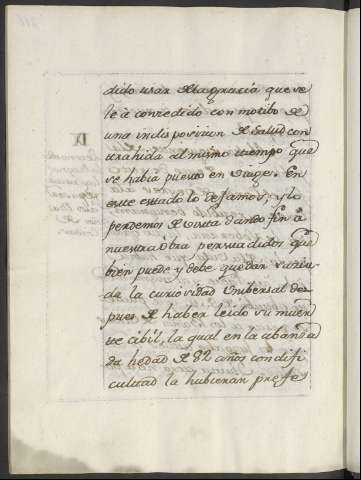 dido usar de la gracia que se
le à concedido con motibo de
una indisposicion de salud con
trahida al mismo tiempo que
se habia puesto en viage. En
este estado lo dejamos, y lo
perdemos de vista dando fin à
nuestra obra persuadidos que
bien puede y debe quedar satis
de la curiosidad unibersal des
pues de haber leido su muer
te cibil, la qual en la abanza
da hedad de 82 años con difi
cultad la hubieran profe